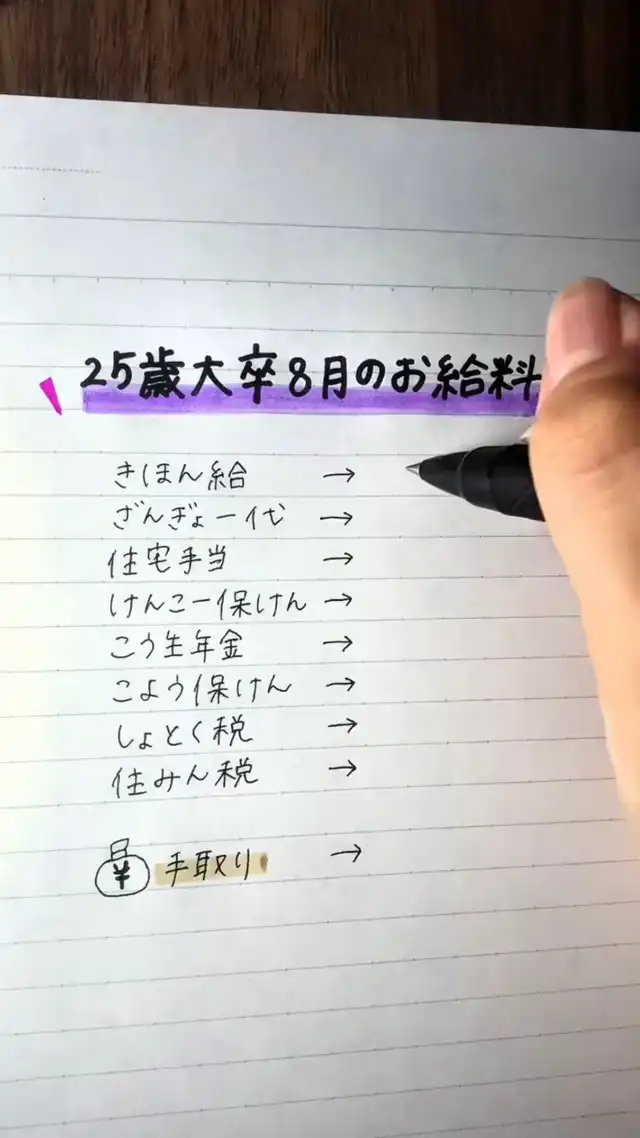 25歳大卒8月のお給料
きほん給 →
ざんぎょー代 →
住宅手当 →
けんこー保けん →
こう生年金 →
こよう保けん →
しょとく税 →
住みん税 →
¥ 手取り →